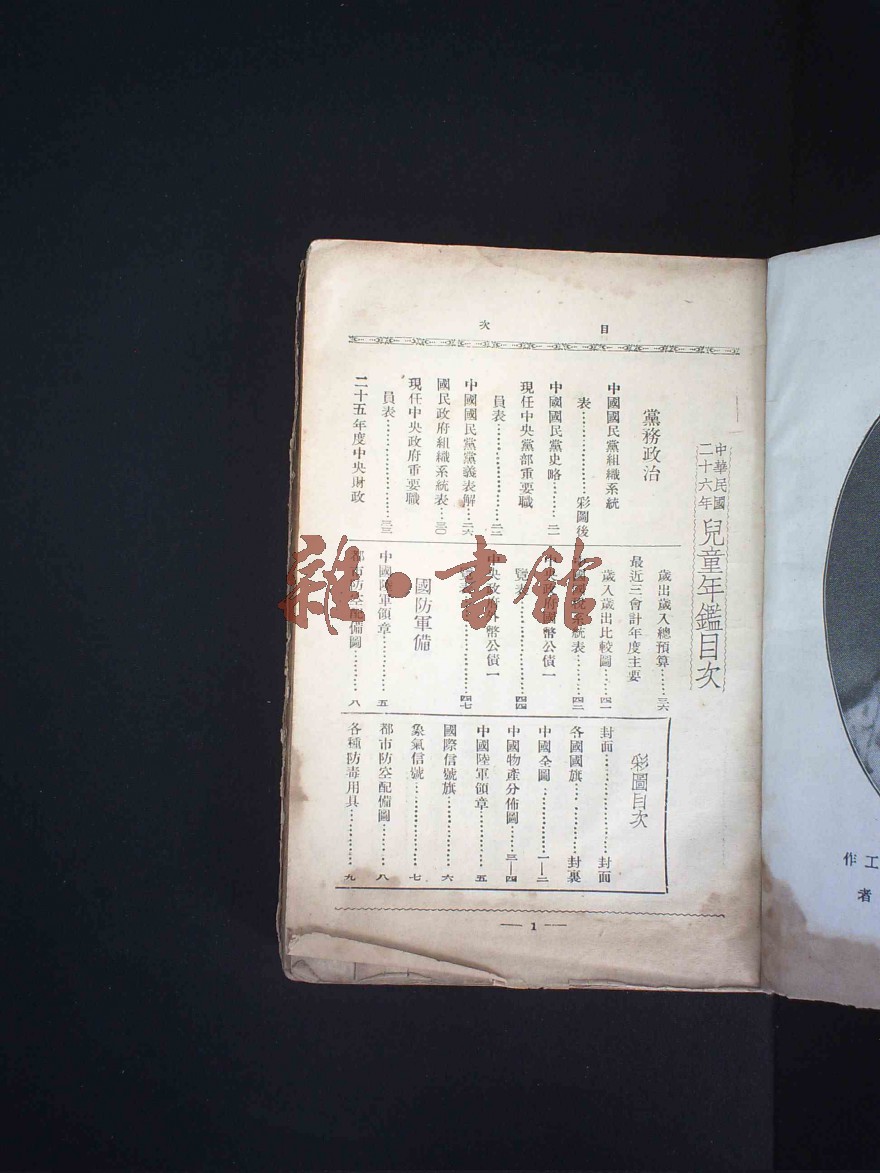 目次
中華民國
二十六年
兒童年鑑目次
黨務政治
中國國民黨組織系統
表……………彩圖後
中國國民黨史略……二一
現任中央黨部重要職
員表……………二二
中國國民黨黨義表解…二六
國民政府組織系統表…三〇
現任中央政府重要職
員表……………三三
二十五年度中央財政
歲出歲入總預算……三六
最近三會計年度主要
歲入歲出比較圖……四一
系統表……四二
中央政府國幣公債一
覽表……………四四
中央政府外幣公債一
覽表……………四七
國防軍備
中國陸軍領章………五
都市防空配備圖……八
彩圖目次
封面……………封面
各國國旗…………封裏
中國全圖…………一—二
中國物產分佈圖…三—四
中國陸軍領章………五
國際信號旗…………六
象氣信號……………七
都市防空配備圖……八
各種防毒用具………九
— 1 —
工作
者
雜·書館